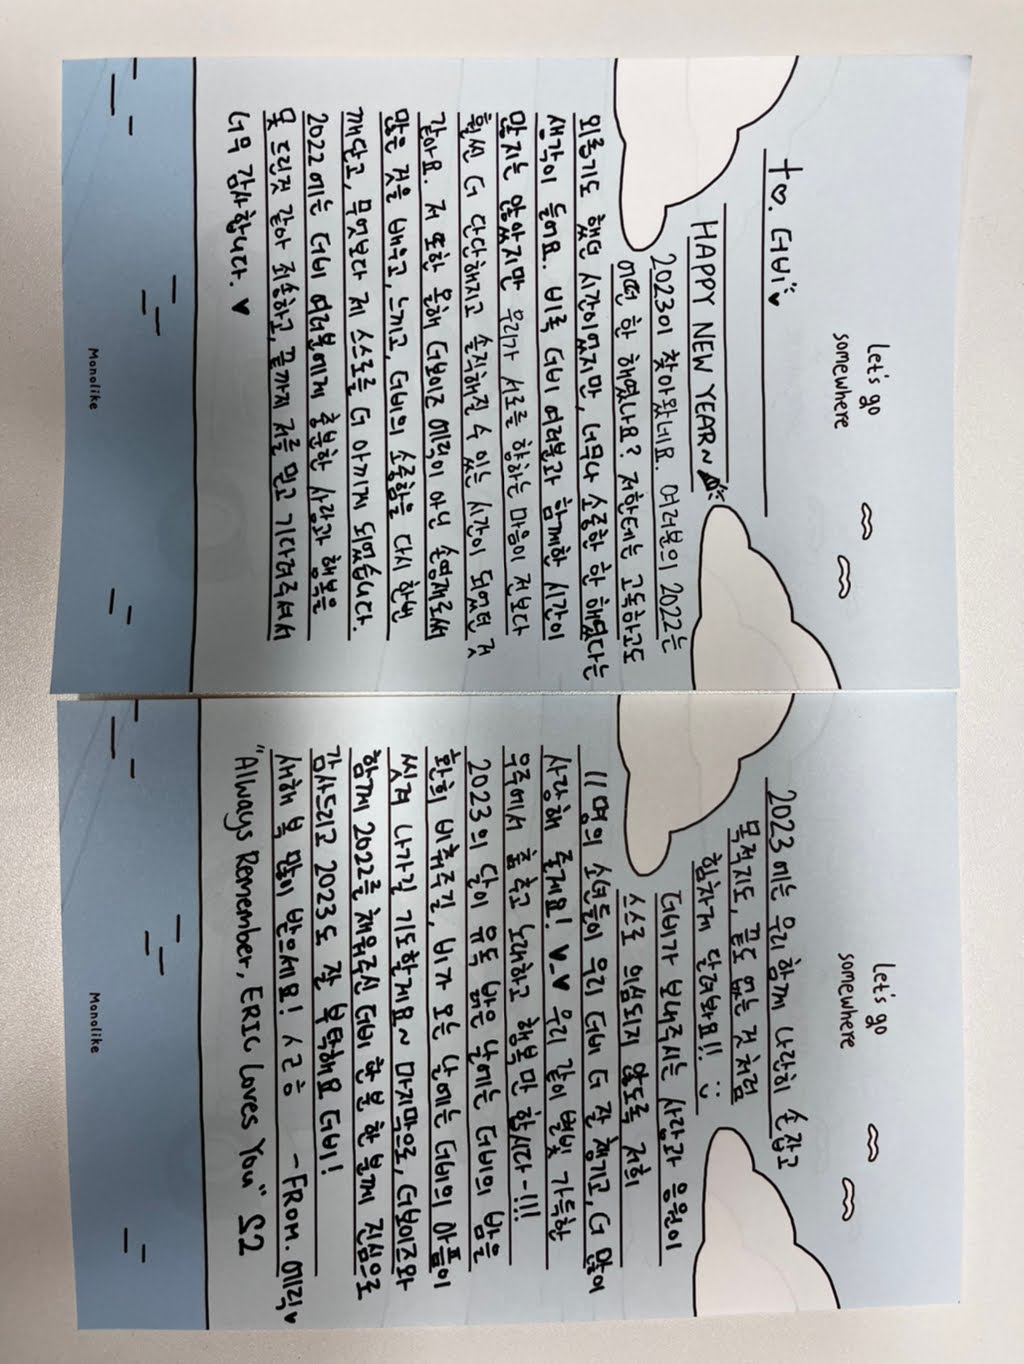 Let's go
somewhere
to. 더비
HAPPY NEW YEAR~
2023이 찾아왔네요. 여러분의 2022는
어떤 한 해였나요? 저한테는 고독하고도
외롭기도 했던 시간이었지만, 너무나 소중한 한 해였다는
생각이 들어요. 비록 더비 여러분과 함께한 시간이
많지는 않았지만 우리가 서로를 향하는 마음이 전보다
훨씬 더 단단해지고 솔직해질 수 있는 시간이 되었던 것
같아요. 저 또한 올해 더보이즈 에릭이 아닌 손영재로써
많은 것을 배우고, 느끼고, 더비의 소중함을 다시 한번
깨닫고, 무엇보다 제 스스로를 더 아끼게 되었습니다.
2022에는 더비 여러분에게 충분한 사랑과 행복을
못 드린것 같아 죄송하고, 끝까지 저를 믿고 기다려주셔서
너무 감사합니다. ♥
Monolike
Let's go
somewhere
2023에는 우리 함께 나란히 손잡고
목적지도, 끝도 없는 것처럼
힘차게 달려봐요!! :)
더비가 보내주시는 사랑과 응원이
스스로 의심되지 않도록 저희
11명의 소년들이 우리 더비 더 잘 챙기고, 더 많이
사랑해 줄게요! ♥_♥ 우리 같이 별빛 가득한
우주에서 춤추고 노래하고 행복만 합시다-!!!
2023의 달이 유독 밝은 날에는 더비의 밤을
환히 비춰주길, 비가 오는 날에는 더비의 아픔이
씻겨 나가길 기도할게요~ 마지막으로, 더보이즈와
함께 2022를 채워주신 더비 한 분 한 분께 진심으로
감사드리고 2023도 잘 부탁해요 더비!
새해 복 많이 받으세요! ㅅㄹㅎ -FROM. 에릭♥
"Always Remember, ERIC Loves You" S2
Monolike